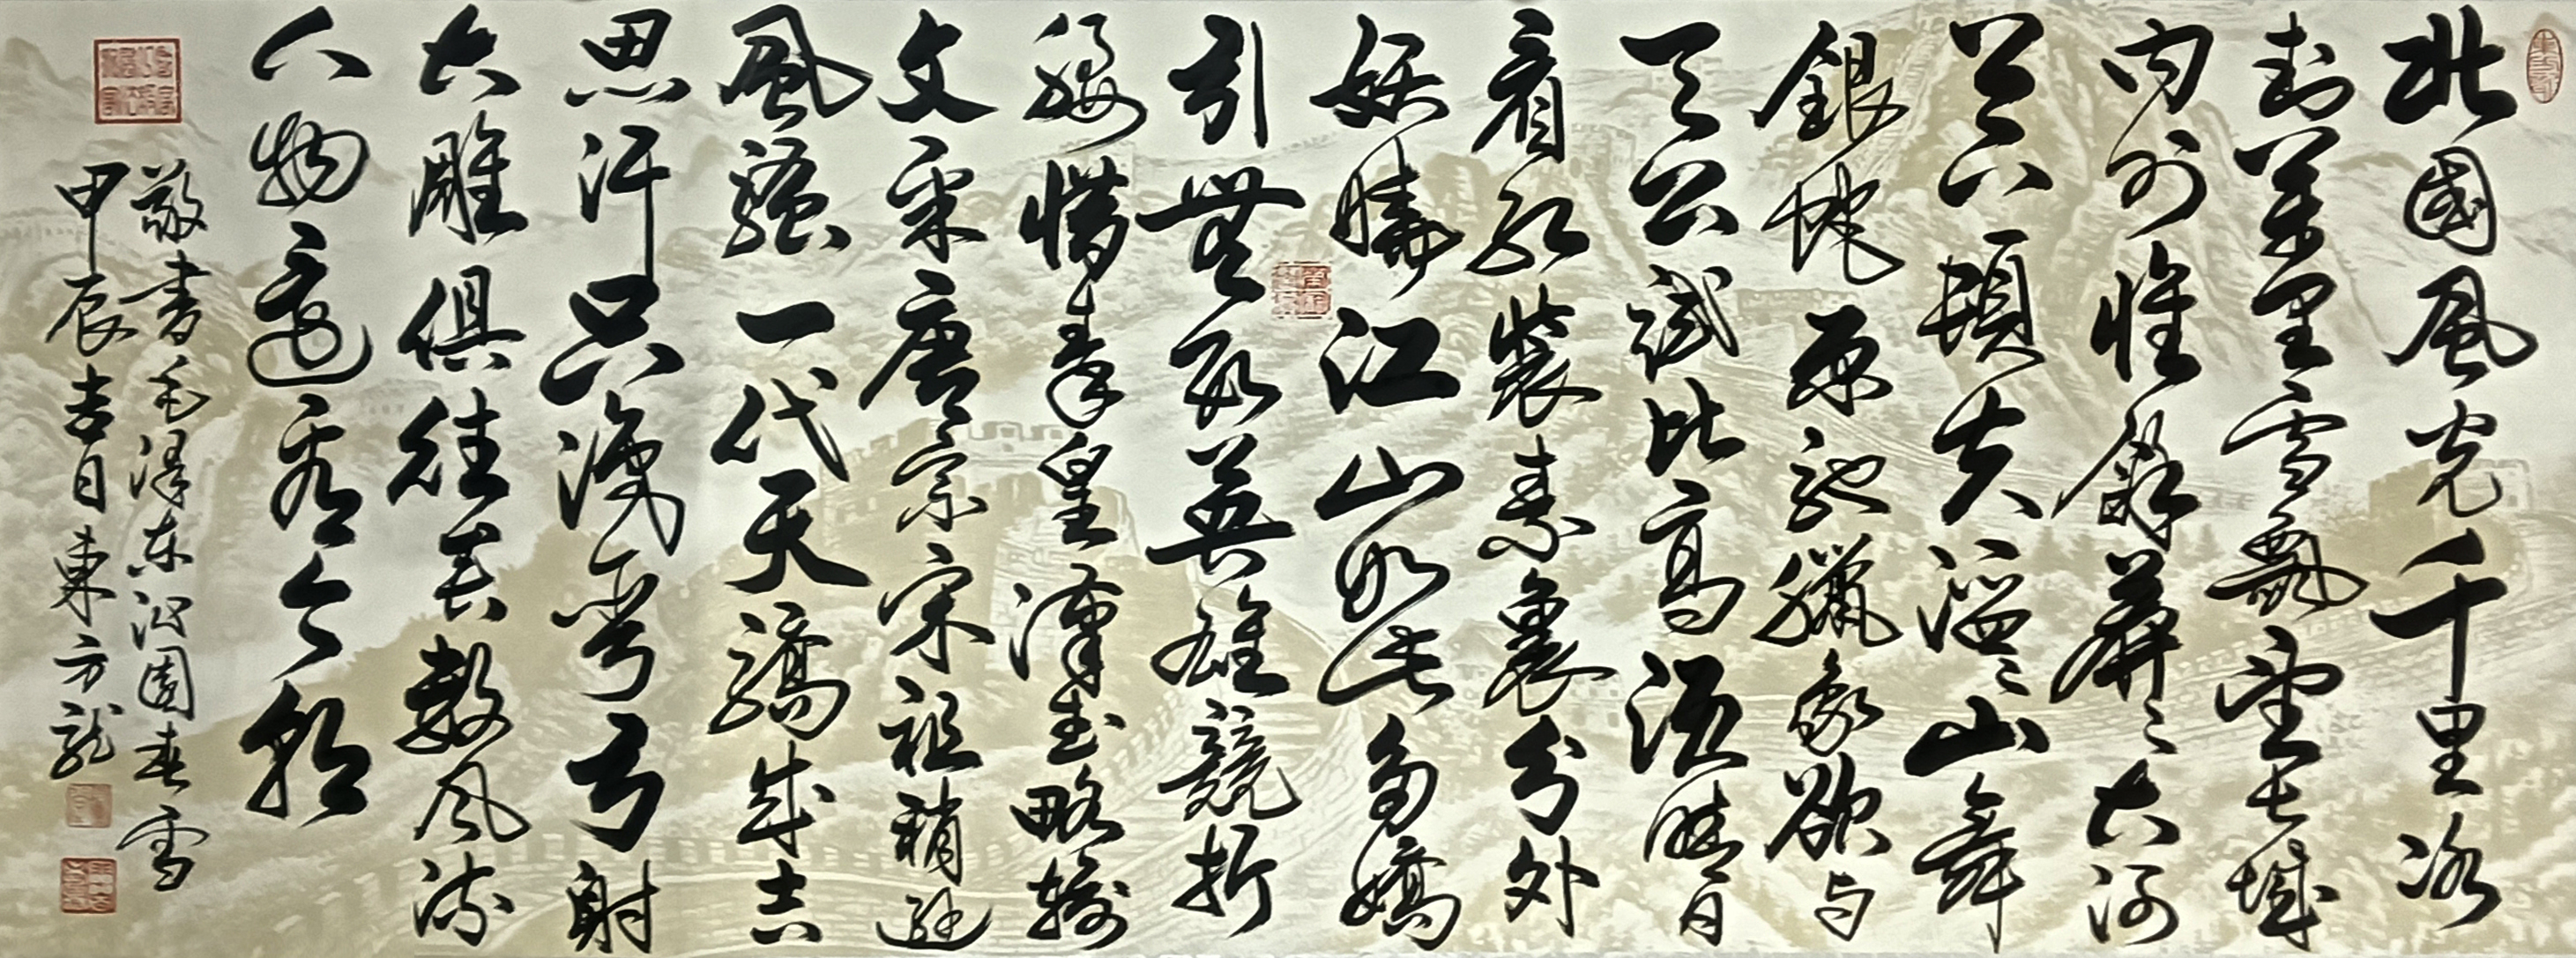 北國風光千里冰
封萬里雪飄望長城
内外惟餘莽〻大河
上下頓失滔〻山舞
銀蛇原馳臘象欲与
天公試比高須晴日
看紅裝素裹分外
妖嬈江山如此多嬌
引無數英雄競折
腰惜秦皇漢武略輸
文采唐宗宋祖稍遜
風騷一代天驕成吉
思汗只識彎弓射
大雕俱往矣數風流
人物還看今朝
敬書毛澤东沁園春雪
甲辰吉日東方龍